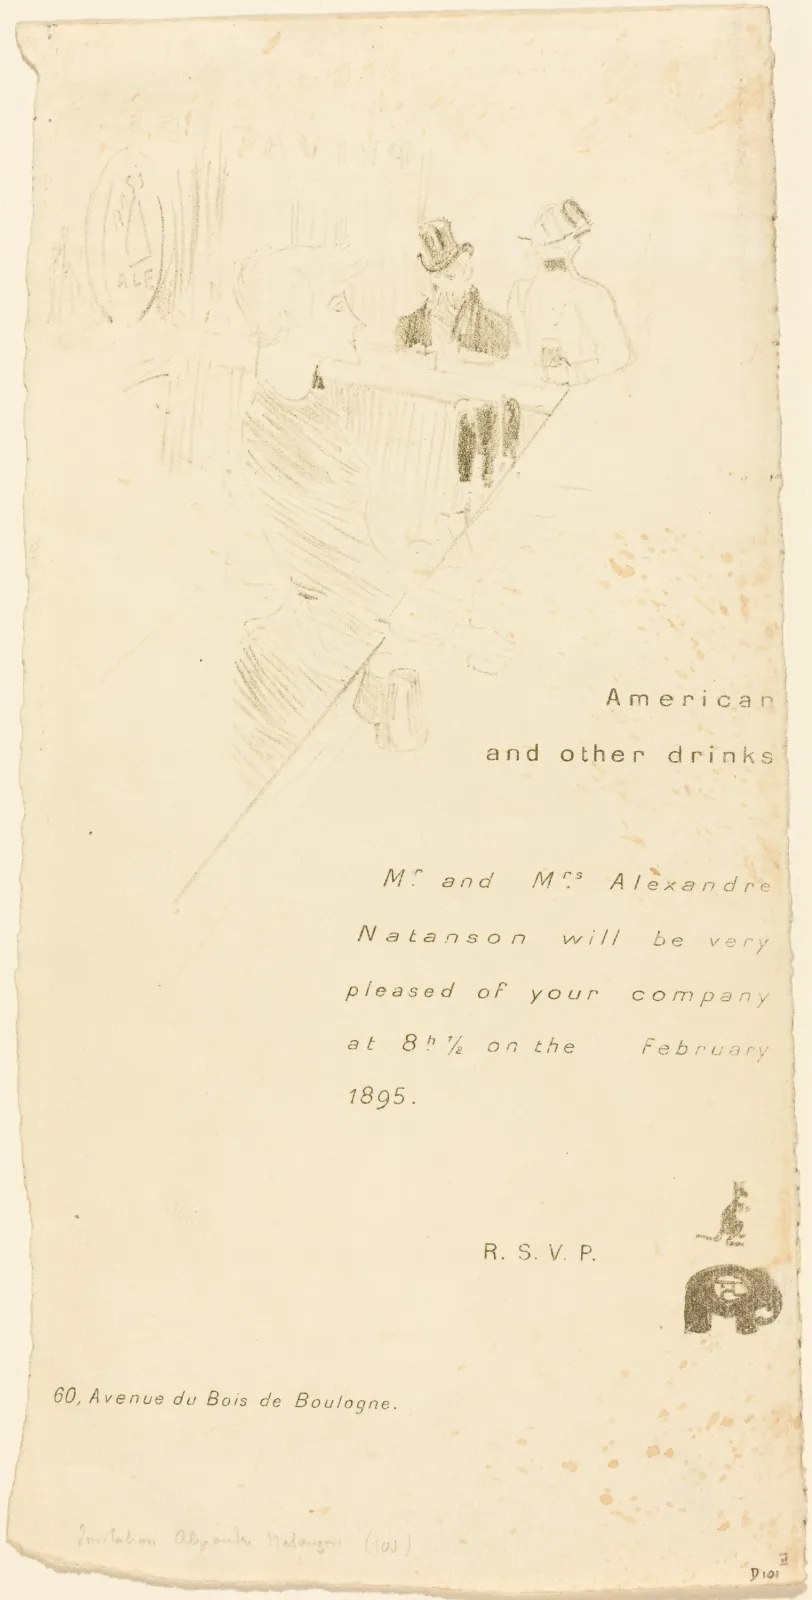 ALE
American
and other drinks
Mr. and Mrs. Alexandre
Natanson will be very
pleased of your company
at 8h. ½ on the February
1895.
R. S. V. P.
60, Avenue du Bois de Boulogne.
Invitation Alexandre Natanson (101)
D 101